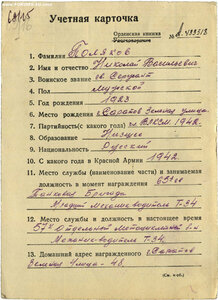 Учетная карточка
Орденская книжка
№
1. Фамилия Поляков
2. Имя и отчество Николай Васильевич
3. Воинское звание ст. Сержант
4. Пол Мужской
5. Год рождения 1923
6. Место рождения г. Саратов Зеленая улица
7. Партийность (с какого года) ВЛКСМ 1942.
8. Образование Низшее
9. Национальность Русский
10. С какого года в Красной Армии 1942
11. Место службы (наименование части) и занимаемая
должность в момент награждения
Танковая Бригада
Механик-водитель Т-34
12. Место службы и должность в настоящее время
57 Отдельный
Механик-водитель Т-34.
13. Домашний адрес награжденного г. Саратов
Зеленая Улица
(См. н-об.)